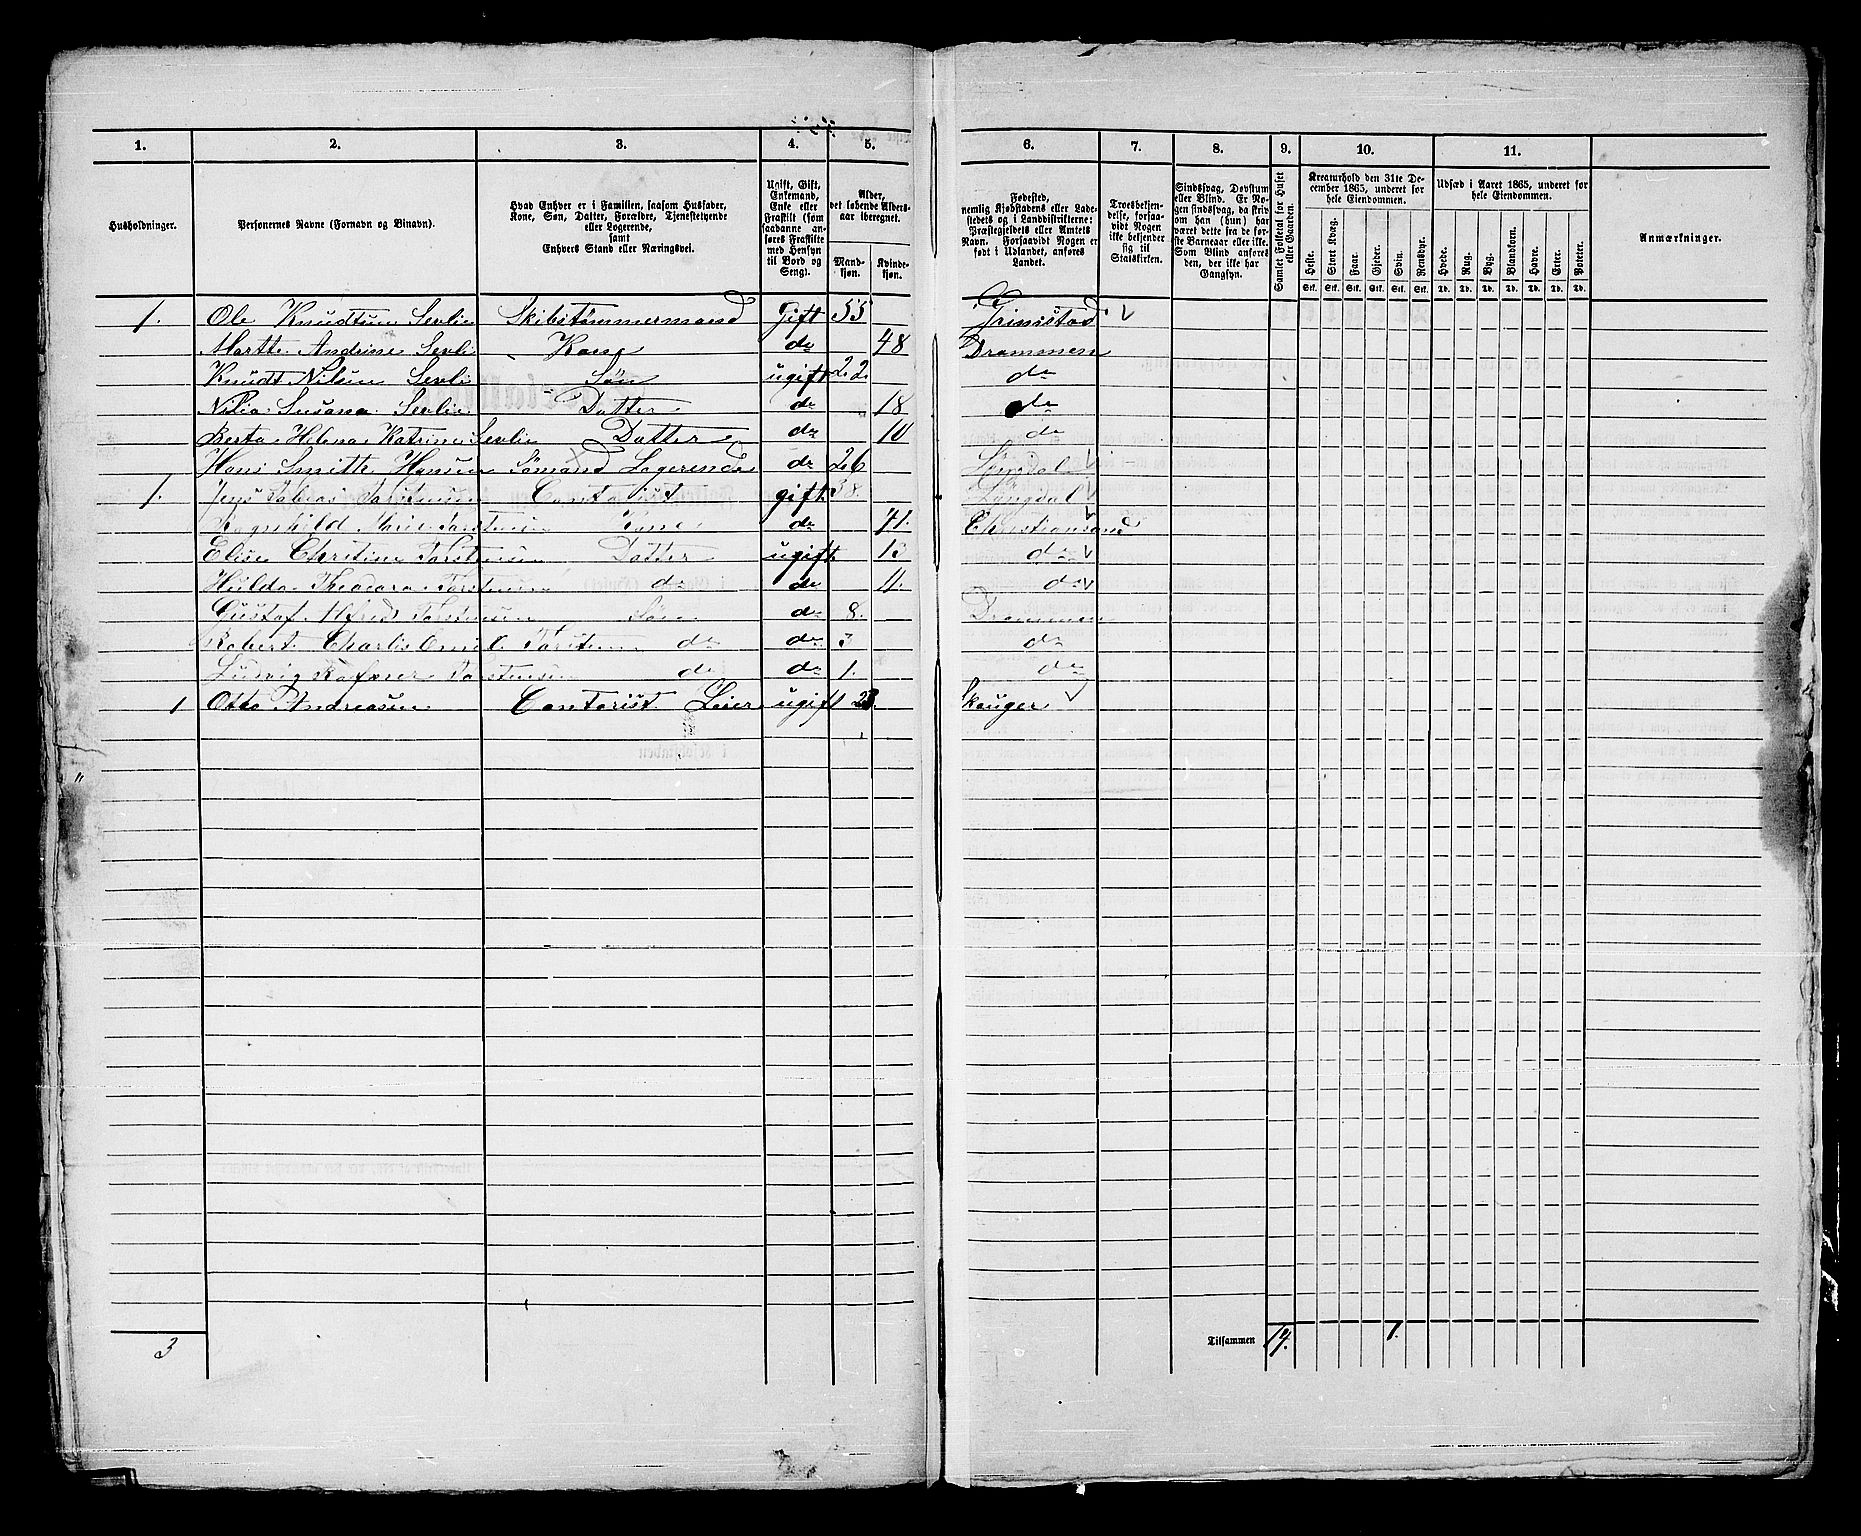 1. 2. 3. 4. 5. 6. 7. 8. 9. 10. 11.
Husholdninger.
Personernes Navne (Fornavn og Binavn).
Hvad Enhver er i Familien, saasom Husfader, Kone, Søn, Datter, Forældre, Tjenestetyende eller Logerende, samt Enhvers Stand eller Næringsvei.
Ugift, Gift, Enkemand, Enke eller Fraskilt (som saadanne anføres Fraskilte med Hensyn til Bord og Seng).
Alder, det løbende Aldersaar iberegnet.
Mandkjøn. Kvindekjøn.
Fødested, nemlig Kjøbstadens eller Ladestedets og i Landdistrikterne: Præstegjeldets eller Amtets Navn. Forsaavidt Nogen er født i Udlandet, anføres Landet.
Troesbekjendelse, forsaavidt Nogen ikke bekjender sig til Statskirken.
Sindssvag, Døvstum eller Blind. Er Nogen sindssvag, da skrives om han (hun) har været dette fra de første Barneaar eller ikke. Som Blind anføres den, der ikke har Gangsyn.
Samlet Folketal for Huset eller Gaarden.
Kreaturhold den 31te December 1865, underet for hele Eiendommen.
Heste. Stort Kvæg. Faar. Gjeder. Svin. Rensdyr.
Stk. Stk. Stk. Stk. Stk. Stk.
Udsæd i Aaret 1865, underet for hele Eiendommen.
Hvede. Rug. Byg. Blandkorn. Havre. Erter. Poteter.
Td. Td. Td. Td. Td. Td. Td.
Anmærkninger.
1. Ole Knudtsen Sevlie Skibstømmermand Gift 55 Grimstad
Marthe Andrine Sevli Kone do 48 Drammen
Knudt Nilsen Sevli Søn ugift 22 do
Nilia Susana Sevlie Datter do 18 do
Berta Helena Katrine Sevlie Datter do 10 do
Hans Smitte Hansen Sømand Logerende do 26
1. Jens Tobias Torstensen Contorist gift 38 Lyngdal
Ragnhild Marie Torstensen Kone do 41. Christiansand
Elise Christine Torstensen Datter ugift 13 do
Hulda Theodora Torstensen do do 11. do
Gustaf Alfred Torstensen Søn do 8. Drammen
Robert Charlis Emil Torstensen do do 3 do
Ludvig Torstensen do do 1. do
1 Otto Andreasen Contorist Leier ugift 23. Skouger
3 Tilsammen 14. 1.